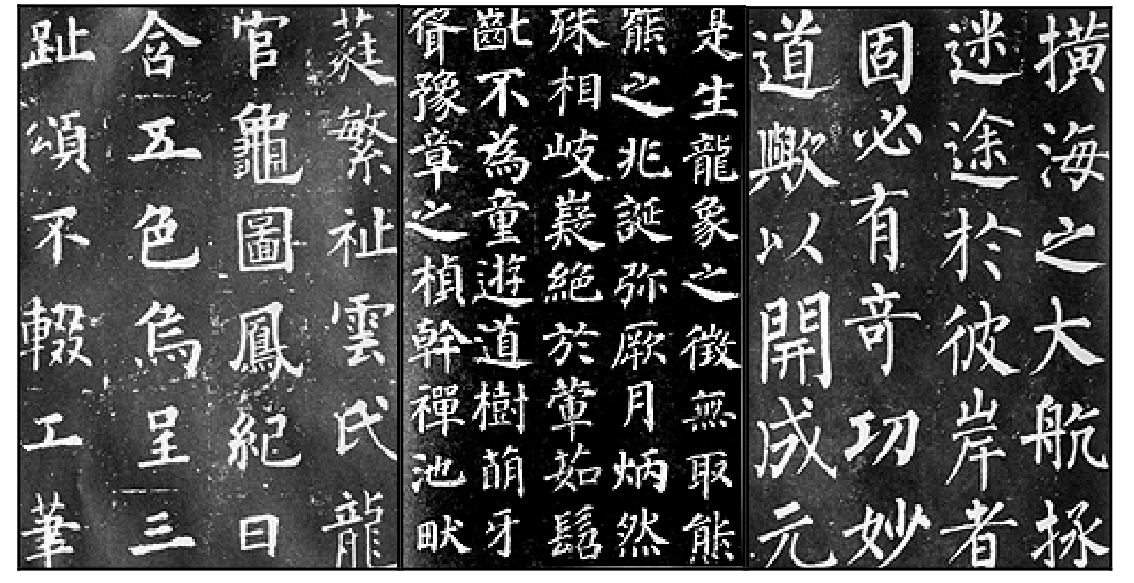 橫海之大航拯
迷途於彼岸者
固必有奇功妙
道歟以開成元
是生龍象之徵無取熊
熊之兆誕弥厥月炳然
殊相岐嶷絕於葷茹髫
齔不為童遊道樹萌牙
聳豫章之楨幹禪池畎
蕤繁祉雲氏龍
官龜圖鳳紀日
含五色烏呈三
趾頌不輟工筆